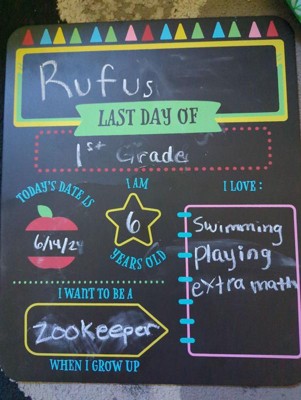 Rufus
LAST DAY OF
1st Grade
TODAY'S DATE IS
6/14/24
I AM
6
YEARS OLD
I LOVE :
Swimming
Playing
extra math
I WANT TO BE A
Zookeeper
WHEN I GROW UP